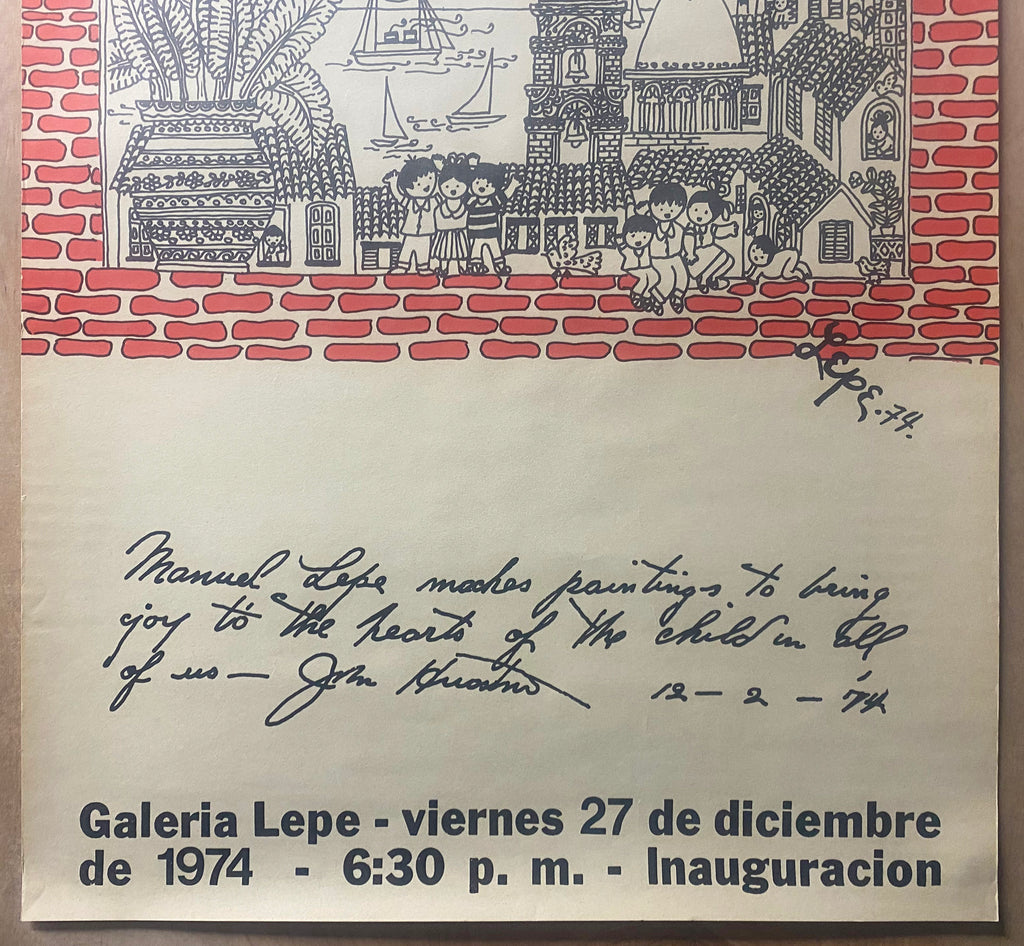 Lepe.74.
Manuel Lepe makes paintings to bring
joy to the hearts of the child in all
of us — John Huston 12 - 2 - '74
Galeria Lepe - viernes 27 de diciembre
de 1974 - 6:30 p. m. - Inauguracion